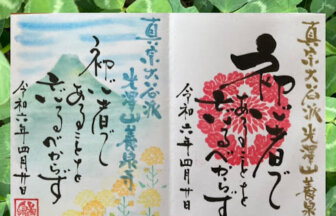 真宗大谷派 光澤山養泉
初心者で
あることを
忘るべからず
令和六年四月廿日
真宗大谷派
光澤山養泉寺
初心者で
あることを
忘るべからず
令和六年四月廿日